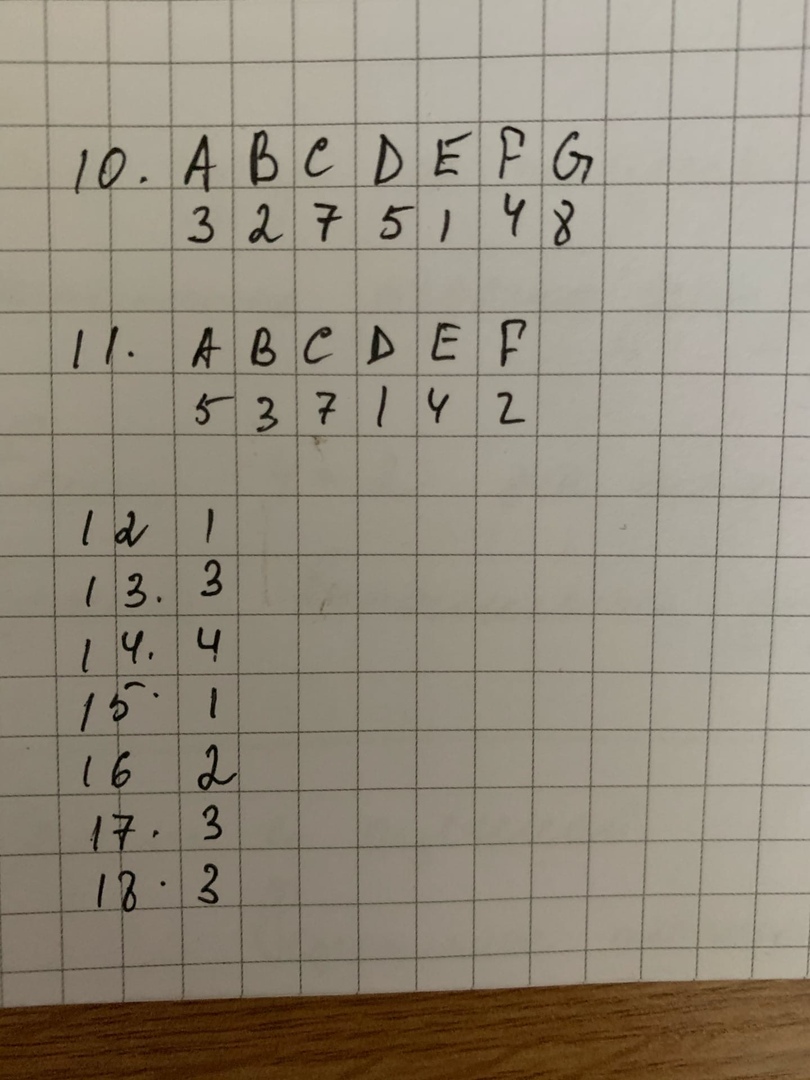 10. A B C D E F G
3 2 7 5 1 4 8
11. A B C D E F
5 3 7 1 4 2
12 1
13. 3
14. 4
15. 1
16 2
17. 3
18. 3